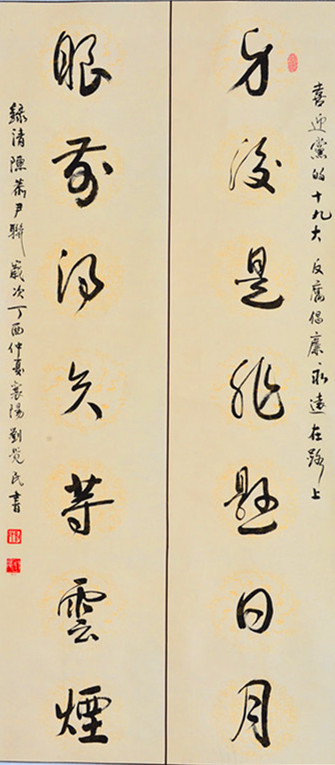 喜迎黨的十九大 反腐倡廉永遠在路上
身後是非懸日月
眼前得失等雲煙
錄清陳恭尹聯 歲次丁酉仲夏襄陽劉覺民書